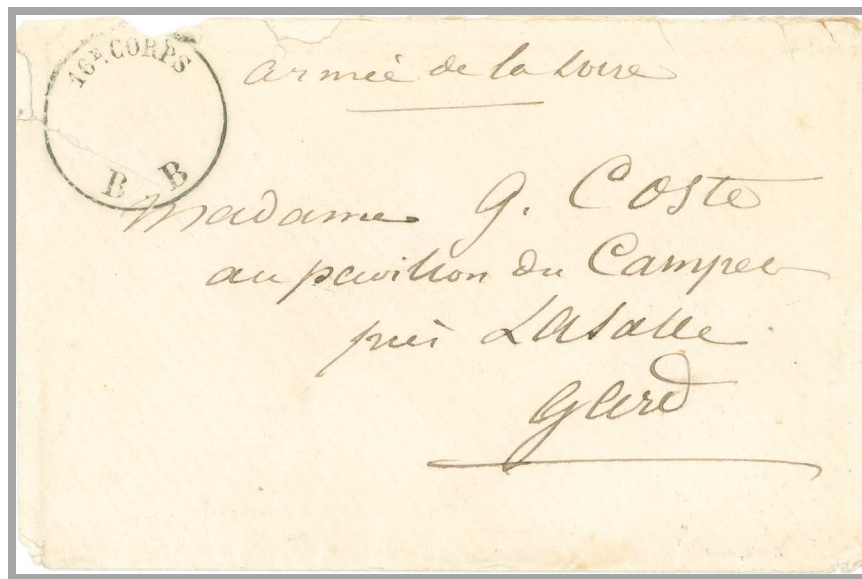 16E CORPS
B B
Armée de la Loire
Madame G. Coste
au pavillon du
près Lasalle
Gard